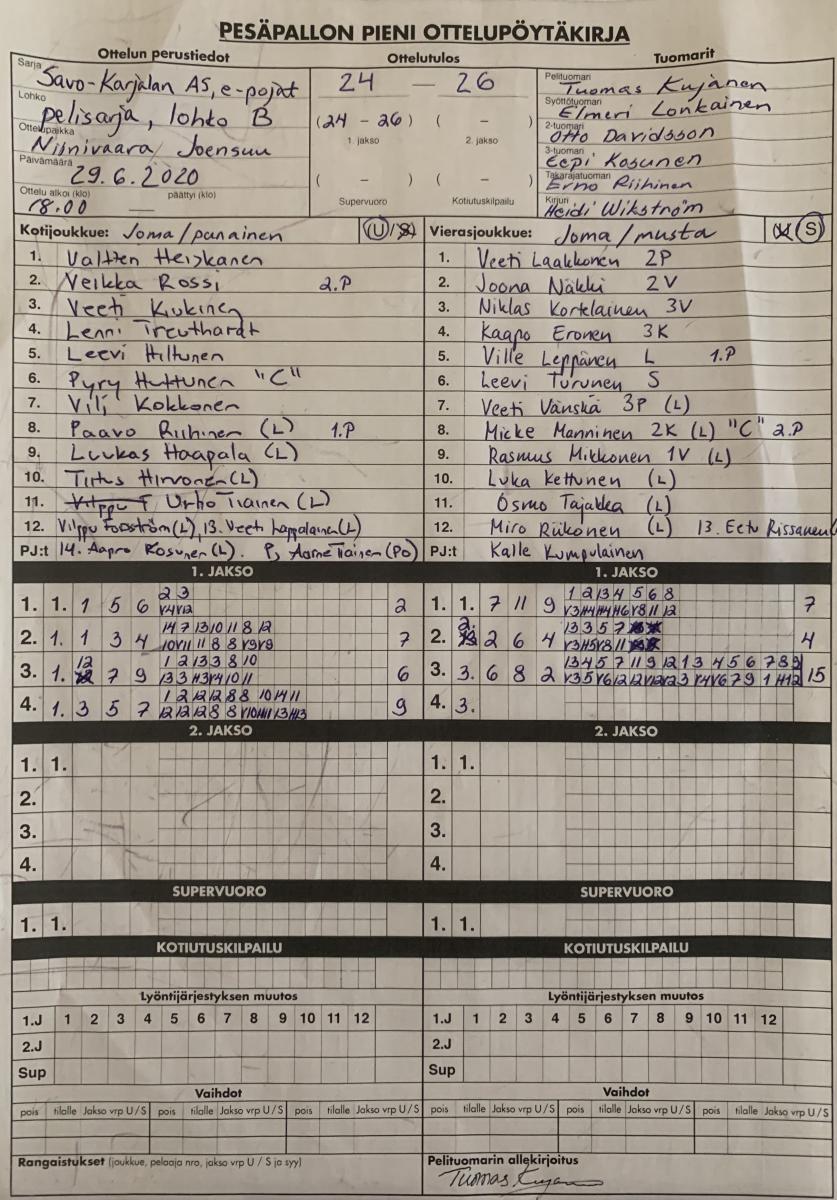 PESÄPALLON PIENI OTTELUPÖYTÄKIRJA
Ottelun perustiedot
Sarja Savo-Karjalan AS, e-pojat
Lohko pelisarja, lohko B
Ottelupaikka Niinivaara, Joensuu
Päivämäärä 29.6.2020
Ottelu alkoi (klo) 18.00 — päättyi (klo)
Ottelutulos
24 — 26
(24 - 26) ( - )
1. jakso 2. jakso
( - ) ( - )
Supervuoro Kotiutuskilpailu
Tuomarit
Pelituomari Tuomas Kujanen
Syöttötuomari Elmeri Lonkainen
2-tuomari Otto Davidsson
3-tuomari Eepi Kosunen
Takarajatuomari Erno Riihinen
Kirjuri Heidi Wikström
Kotijoukkue: Joma/punainen U/S
1. Valtteri Heiskanen
2. Veikka Rossi 2.P
3. Veeti Kukinen
4. Lenni Treuthardt
5. Leevi Hiltunen
6. Pyry Huttunen "C"
7. Vili Kokkonen
8. Paavo Riihinen (L) 1.P
9. Luukas Haapala (L)
10. Tiitus Hirvonen (L)
11. Urho Tiainen (L)
12. Vilppu Forsström (L), 13. Veeti Lappalainen (L)
PJ:t 14. Aapro Kosunen (L). PJ Aarne Tiainen (Po)
Vierasjoukkue: Joma/musta U S
1. Veeti Laakkonen 2P
2. Joona Näkki 2V
3. Niklas Kortelainen 3V
4. Kaapo Eronen 3K
5. Ville Leppänen L 1.P
6. Leevi Turunen S
7. Veeti Vänskä 3P (L)
8. Micke Manninen 2K (L) "C" 2.P
9. Rasmus Mikkonen 1V (L)
10. Luka Kettunen (L)
11. Osmo Tajakka (L)
12. Miro Riikonen (L) 13. Eetu Rissanen (
PJ:t Kalle Kumpulainen
1. JAKSO
1. 1. 1 5 6 2 3 2
2. 1. 1 3 4 7
3. 1. 12 7 9 6
4. 1. 3 5 7 9
1. JAKSO
1. 1. 7 11 9 7
2. 2. 2 6 4 4
3. 3. 6 8 2 15
4. 3.
2. JAKSO
1. 1.
2.
3.
4.
2. JAKSO
1. 1.
2.
3.
4.
SUPERVUORO
1. 1.
SUPERVUORO
1. 1.
KOTIUTUSKILPAILU
KOTIUTUSKILPAILU
Lyöntijärjestyksen muutos
1.J 1 2 3 4 5 6 7 8 9 10 11 12
2.J
Sup
Lyöntijärjestyksen muutos
1.J 1 2 3 4 5 6 7 8 9 10 11 12
2.J
Sup
Vaihdot
pois tilalle Jakso vrp U / S pois tilalle Jakso vrp U / S pois tilalle Jakso vrp U / S
Vaihdot
pois tilalle Jakso vrp U / S pois tilalle Jakso vrp U / S pois tilalle Jakso vrp U / S
Rangaistukset (joukkue, pelaaja nro, jakso vrp U / S ja syy)
Pelituomarin allekirjoitus
Tuomas Kujanen